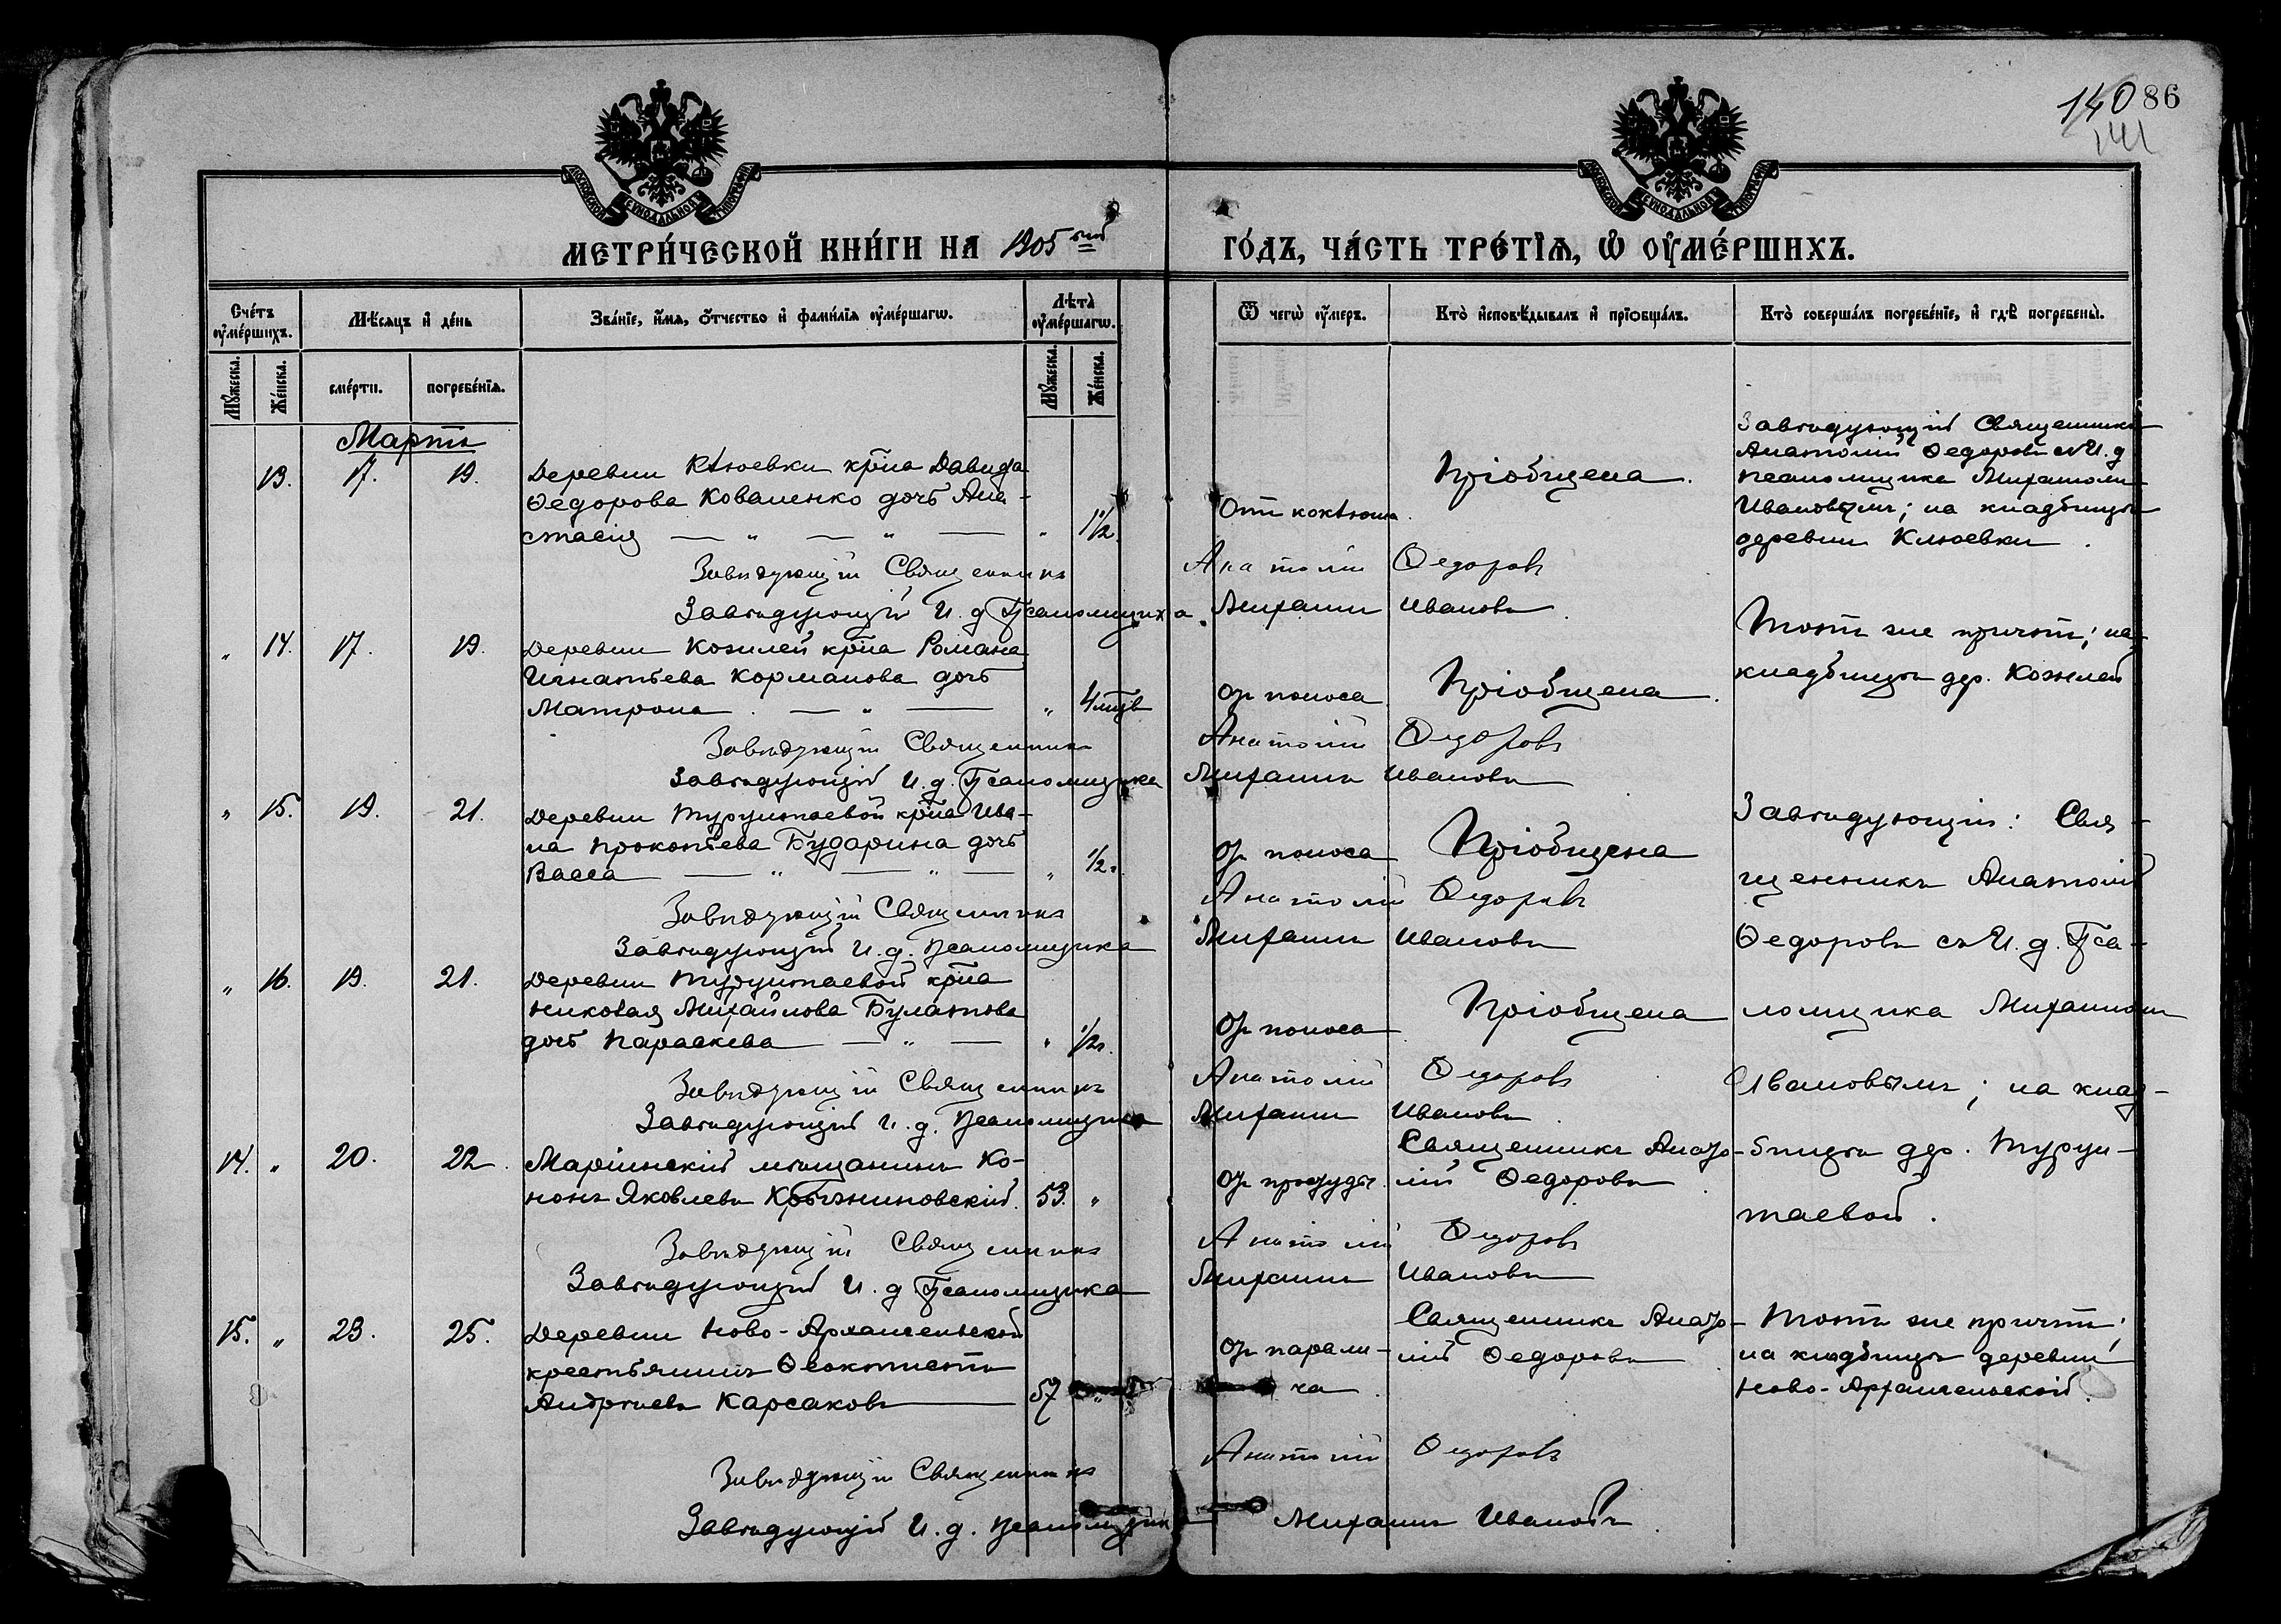 140 86
141
МЕТРИ́ЧЕСКОЙ КНИ́ГИ НА 1905 ый ГО́ДЪ, ЧА́СТЬ ТРЕ́ТІѦ, Ѡ ОУМЕ́РШИХЪ.
Сче́тъ оумершихъ.
Мѣсяцъ и де́нь
Зва́ніе, и́мя, о́тчество и фами́лія оумершагѡ.
Лѣта̀ оумершагѡ.
Ѿ чегѡ̀ оумеръ.
Кто̀ исповѣдывалъ и пріобща́лъ.
Кто̀ соверша́лъ погребе́ніе, и гдѣ̀ погребены̀.
Мужеска.
Же́нска.
сме́рти.
погребе́нія.
Мужеска.
Же́нска.
Мартъ
13. 17. 19.
Деревни Клюевки кр̃на Давида
Ѳедорова Коваленко дочь Ана-
стасія — " — " — " 1½.
Отъ коклюша.
Пріобщена.
Завѣдующій Священникъ
Анатолій Ѳедоровъ съ И. д
псаломщика Михаиломъ
Ивановымъ; на кладбищѣ
деревни Клюевки.
Завѣдующій Священникъ Анатолій Ѳедоровъ
Завѣдующій И. д Псаломщика Михаилъ Ивановъ.
" 14. 17. 19.
Деревни Кожлей кр̃на Романа
Игнатьева Корманова дочь
Матрона. — " — " 4 мцв
От поноса
Пріобщена.
Тотъ же причтъ; на
кладбищѣ дер. Кожлей
Завѣдующій Священникъ Анатолій Ѳедоровъ
Завѣдующій И. д. Псаломщика Михаилъ Ивановъ
" 15. 19. 21.
Деревни Турунтаевой кр̃на Ива-
на Прокопьева Бударина дочь
Васса — " — " — " ½.
От поноса
Пріобщена
Завѣдующій: Свя-
щенникъ Анатолій
Ѳедоровъ съ И. д. Пса-
ломщика Михаиломъ
Ивановымъ; на клад-
бищѣ дер. Турун-
таевой.
Завѣдующій Священникъ Анатолій Ѳедоровъ
Завѣдующій И. д. Псаломщика Михаилъ Ивановъ
" 16. 19. 21.
Деревни Турунтаевой кр̃на
Николая Михайлова Булатова
дочь Параскева — " — " ½.
От поноса
Пріобщена
Завѣдующій Священникъ Анатолій Ѳедоровъ
Завѣдующій И. д. Псаломщика Михаилъ Ивановъ
14. " 20. 22.
Маріинскій мѣщанинъ Ко-
нонъ Яковлевъ 53. "
От простуды.
Священникъ Анато-
лій Ѳедоровъ.
Завѣдующій Священникъ Анатолій Ѳедоровъ
Завѣдующій И. д Псаломщика Михаилъ Ивановъ
15. " 23. 25.
Деревни Ново-Архангельской
крестьянинъ Ѳеоктистъ
Андреевъ Карсаковъ — 57 "
От парали-
ча.
Священникъ Анато-
лій Ѳедоровъ
Тотъ же причтъ;
на кладбищѣ деревни
Ново-Архангельской.
Завѣдующій Священникъ Анатолій Ѳедоровъ
Завѣдующій И. д. Псаломщика Михаилъ Ивановъ.